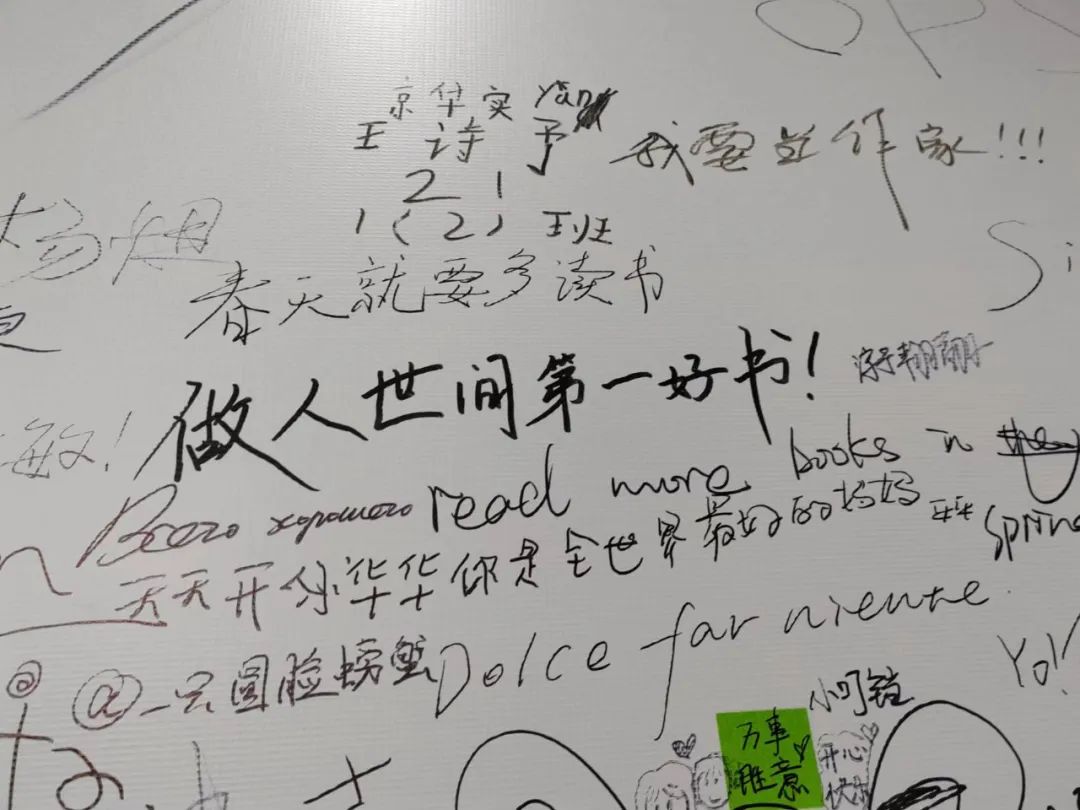 京华实 Yan
王诗予 我要当作家!!!
2 1
1(2)班
杨烟
春天就要多读书
Si
做人世间第一好书!
敏!
Всего хорошего
read more books in the spring
天天开心华华你是全世界最好的妈妈
Dolce far niente
@一只圆脸螃蟹
Yo!
小叮铛
万事
胜意
开心